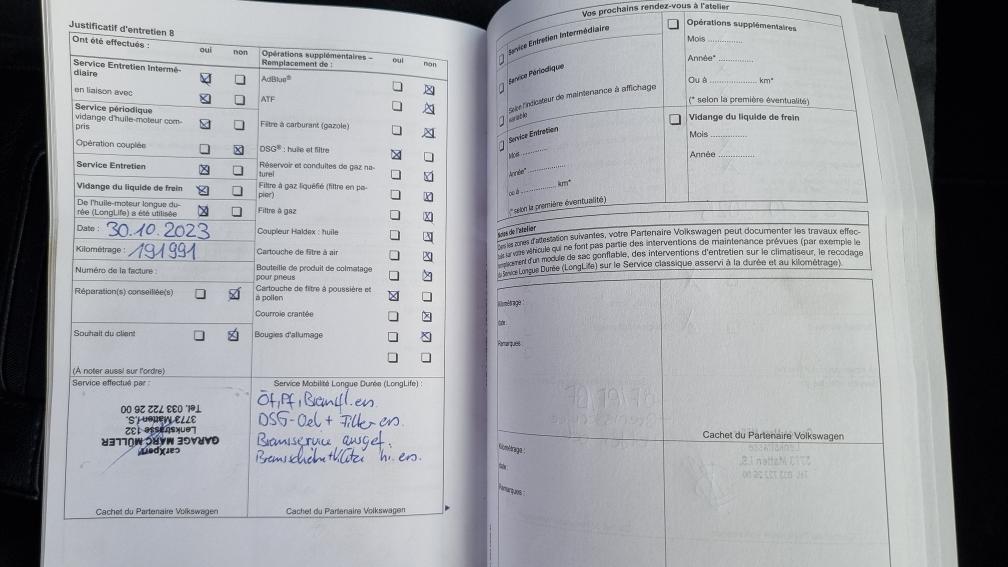 Justificatif d'entretien 8
Ont été effectués :
oui
non
Service Entretien Intermé-
diaire
en liaison avec
Service périodique
vidange d'huile-moteur com-
pris
Opération couplée
Service Entretien
Vidange du liquide de frein
De l'huile-moteur longue du-
rée (LongLife) a été utilisée
Date : 30.10.2023
Kilométrage : 191991
Numéro de la facture :
Réparation(s) conseillée(s)
Souhait du client
(À noter aussi sur l'ordre)
Opérations supplémentaires –
Remplacement de :
oui
non
AdBlue®
ATF
Filtre à carburant (gazole)
DSG® : huile et filtre
Réservoir et conduites de gaz na-
turel
Filtre à gaz liquéfié (filtre en pa-
pier)
Filtre à gaz
Coupleur Haldex : huile
Cartouche de filtre à air
Bouteille de produit de colmatage
pour pneus
Cartouche de filtre à poussière et
à pollen
Courroie crantée
Bougies d'allumage
Service effectué par :
carXpert
GARAGE MARC MÜLLER
Lenkstrasse 132
3773 Matten i.S.
Tel. 033 722 26 00
Cachet du Partenaire Volkswagen
Service Mobilité Longue Durée (LongLife) :
Öf, Pf, Bremsfl. ers.
DSG-Oel + Filter ers.
Bremsservice ausgef.
hi. ers.
Cachet du Partenaire Volkswagen
Vos prochains rendez-vous à l'atelier
Service Entretien Intermédiaire
Service Périodique
Selon l'indicateur de maintenance à affichage
variable
Service Entretien
Mois ..............
Année* ..............
ou à .................... km*
(* selon la première éventualité)
Opérations supplémentaires
Mois ..............
Année* ..............
Ou à .................... km*
(* selon la première éventualité)
Vidange du liquide de frein
Mois ..............
Année ..............
Notes de l'atelier
les zones d'attestation suivantes, votre Partenaire Volkswagen peut documenter les travaux effec-
sur votre véhicule qui ne font pas partie des interventions de maintenance prévues (par exemple le
remplacement d'un module de sac gonflable, des interventions d'entretien sur le climatiseur, le recodage
Service Longue Durée (LongLife) sur le Service classique asservi à la durée et au kilométrage).
Kilométrage :
date :
Remarques :
Cachet du Partenaire Volkswagen
Kilométrage :
date :
Remarques :